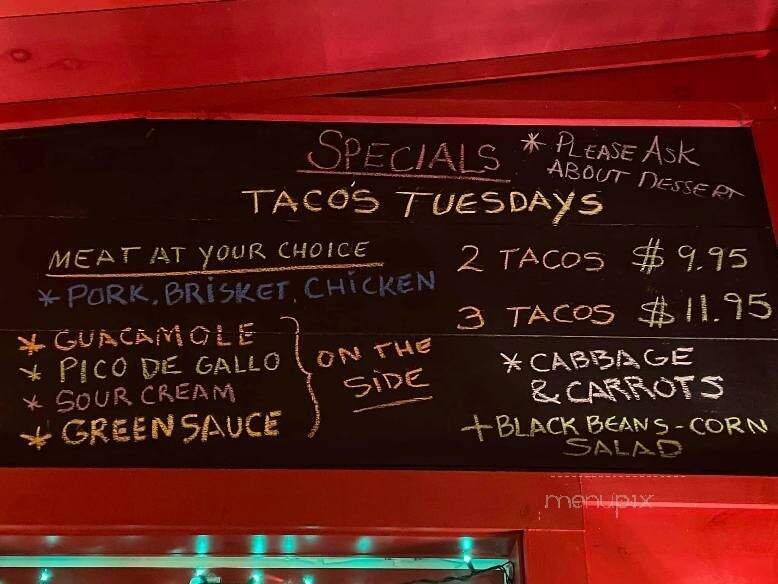 SPECIALS
* PLEASE ASK
ABOUT DESSERT
TACO'S TUESDAYS
MEAT AT YOUR CHOICE
* PORK, BRISKET, CHICKEN
* GUACAMOLE
* PICO DE GALLO
* SOUR CREAM
* GREEN SAUCE
ON THE
SIDE
2 TACOS $ 9.95
3 TACOS $ 11.95
* CABBAGE
& CARROTS
+ BLACK BEANS - CORN
SALAD
menupix